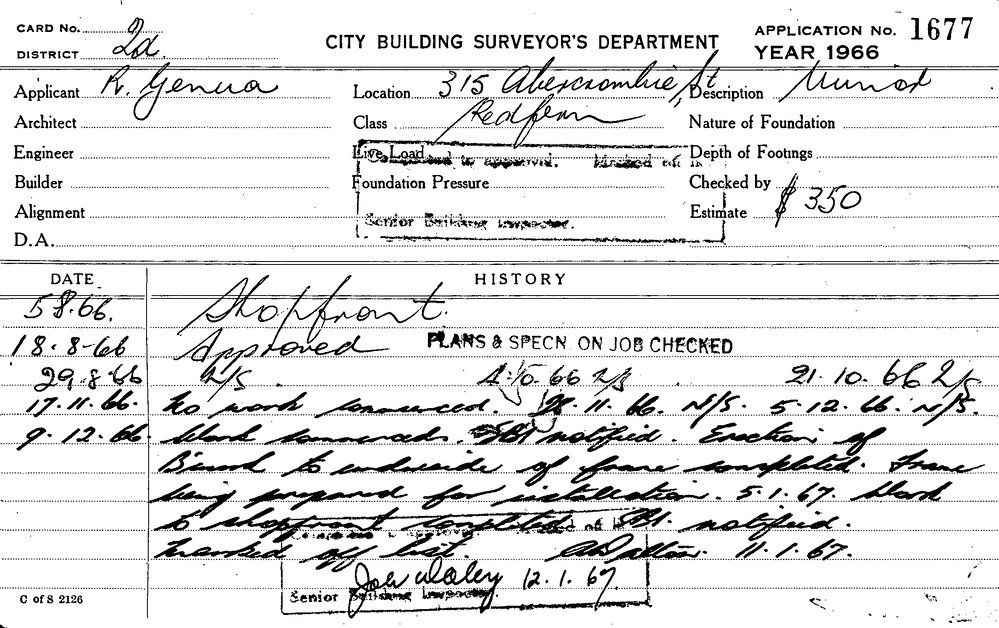 CARD No.
DISTRICT 2d.
CITY BUILDING SURVEYOR'S DEPARTMENT
APPLICATION No. 1677
YEAR 1966
Applicant R. Genua
Location 315 Abercrombie St
Description Minor
Architect
Class Redfern
Nature of Foundation
Engineer
Live Load
to approval. Marked off in
Depth of Footings
Builder
Foundation Pressure
Checked by
Alignment
Senior Building Inspector.
Estimate $350
D.A.
DATE HISTORY
5.8.66. Shopfront.
18.8.66 Approved PLANS & SPECN ON JOB CHECKED
29.8.66 N/S. 4.10.66 N/S 21.10.66 N/S
17.11.66. No work commenced. 28.11.66. N/S. 5.12.66. N/S.
9.12.66. Work commenced. notified. Erection of
Brick to underside of frame completed. Frame
being prepared for installation. 5.1.67. Work
to shopfront completed notified.
Marked off list. 11.1.67.
12.1.67.
Senior Building Inspector
C of S 2126